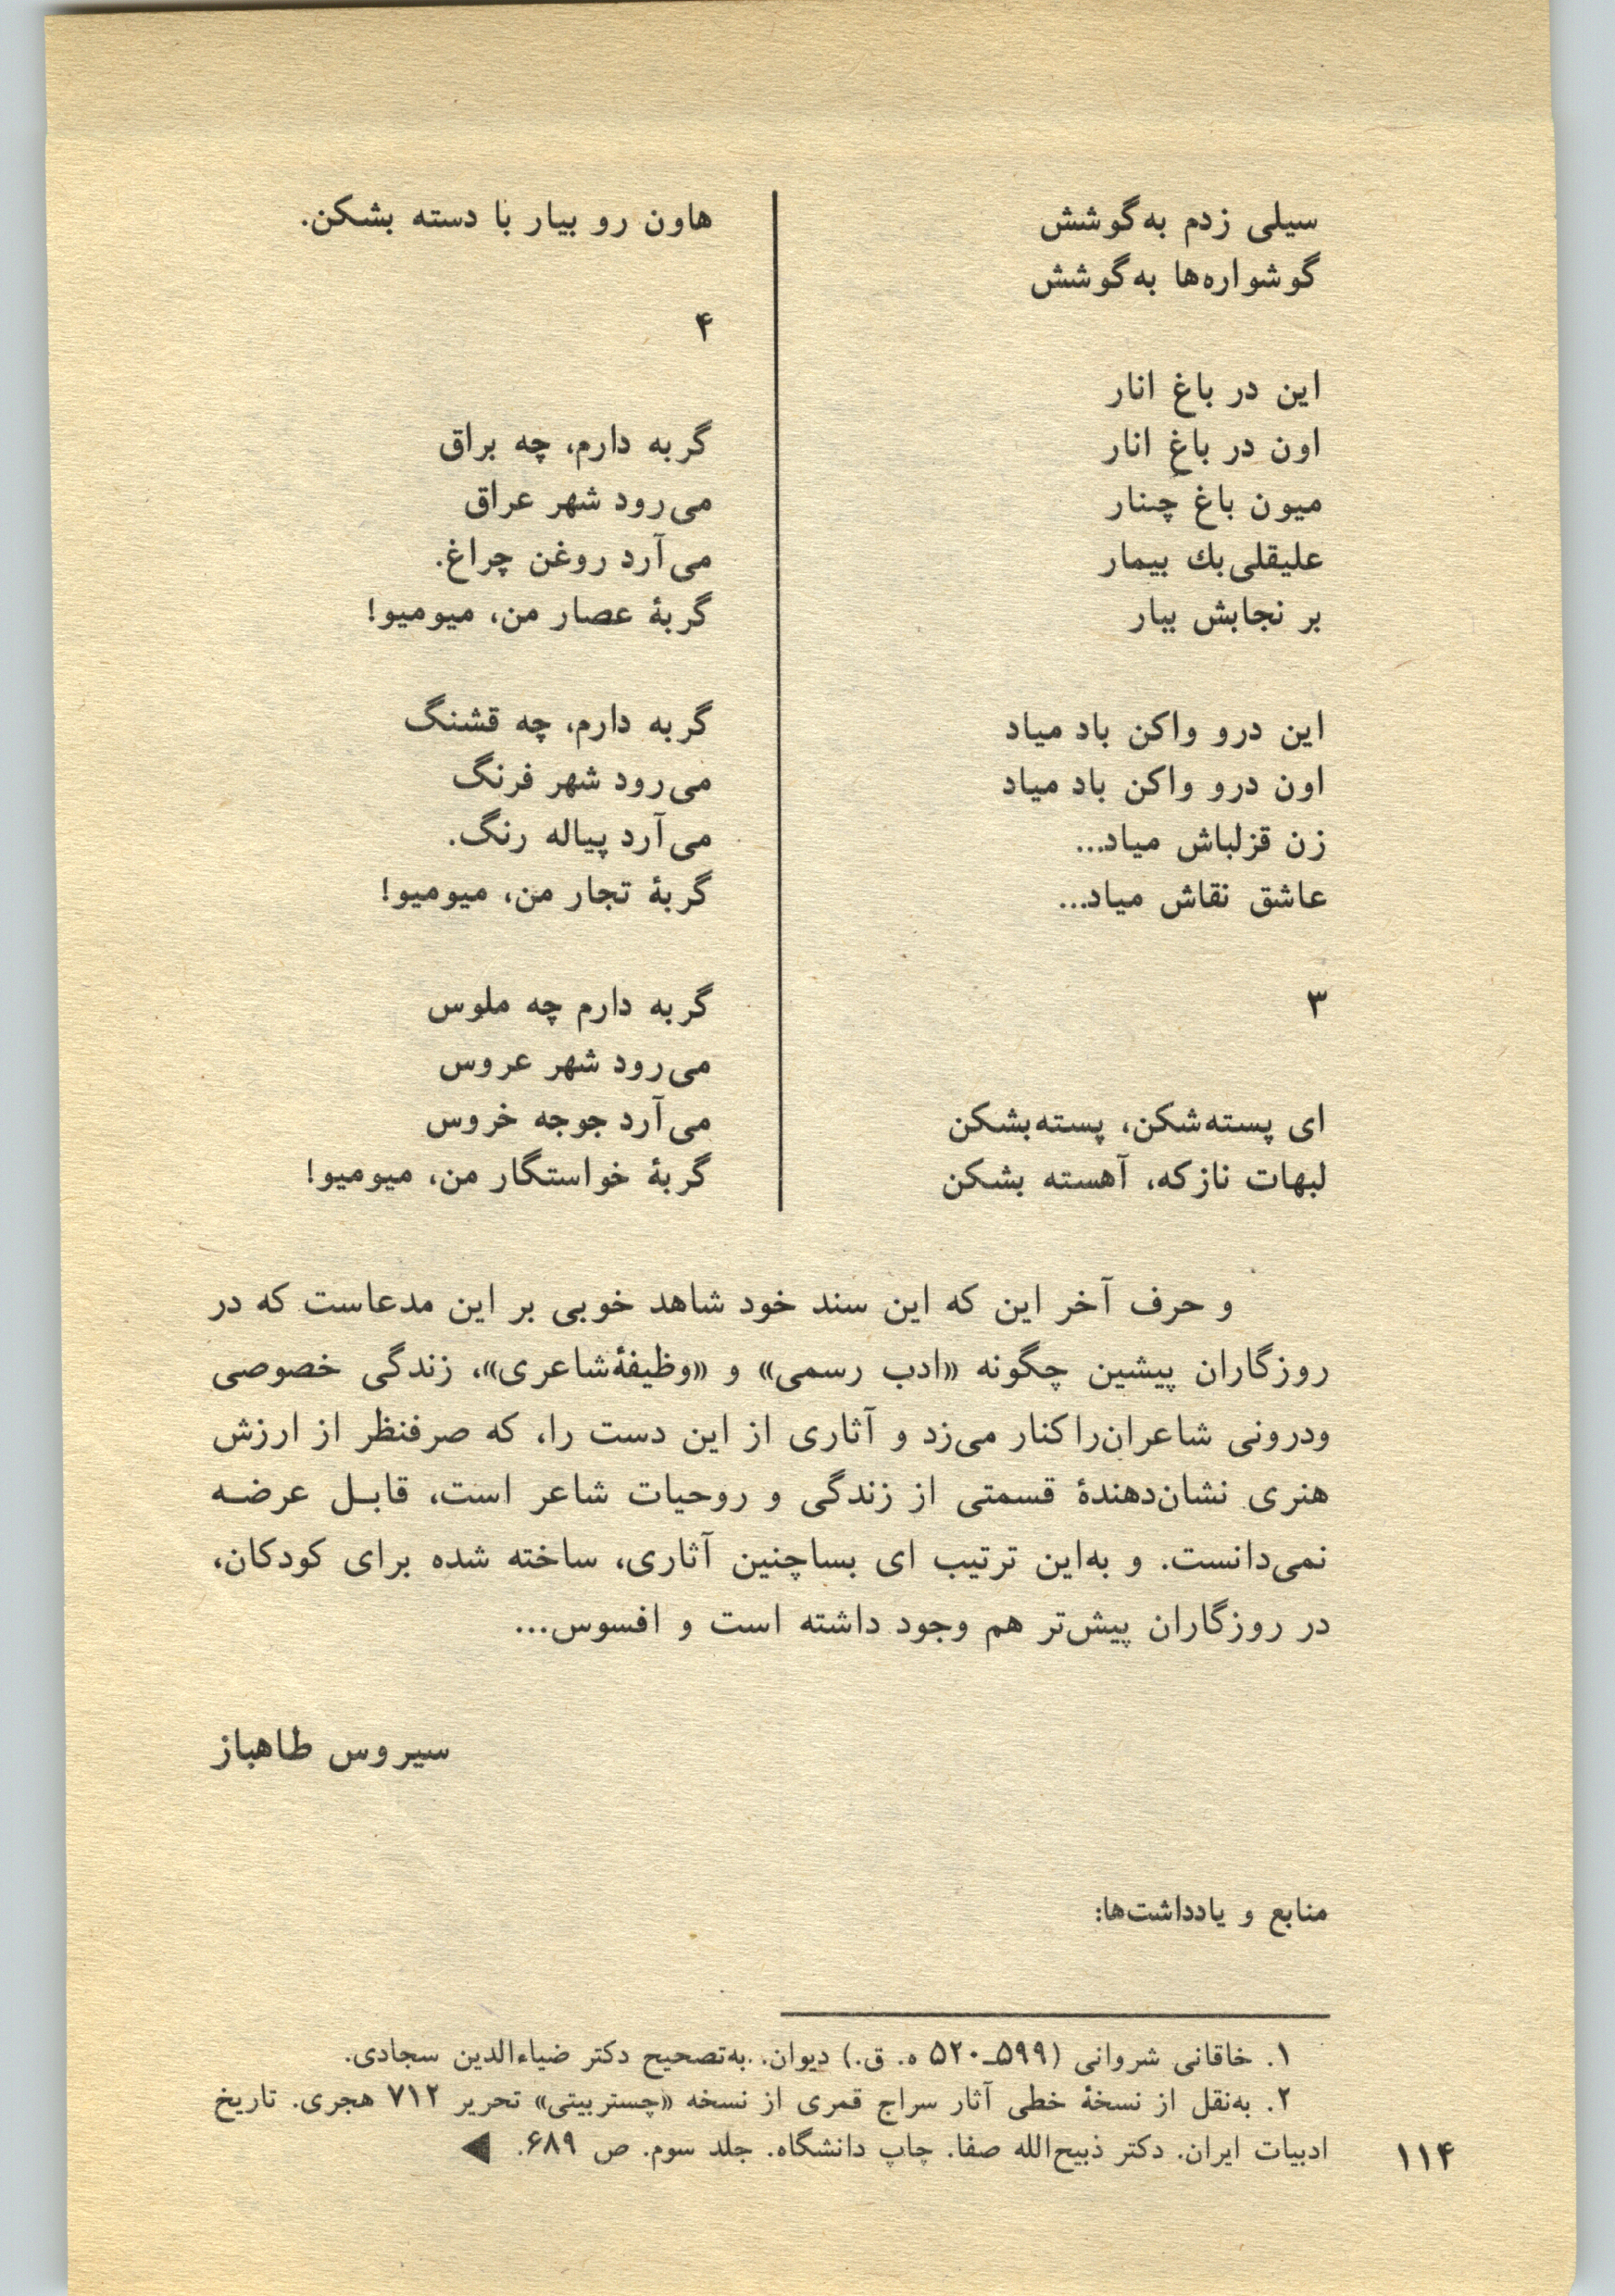 سیلی زدم به‌گوشش
گوشواره‌ها به‌گوشش
این در باغ انار
اون در باغِ انار
میون باغ چنار
علیقلی‌بك بیمار
بر نجابش ببار
این درو واکن باد میاد
اون درو واکن باد میاد
زن قزلباش میاد...
عاشق نقاش میاد...
۳
ای پسته‌شکن، پسته‌بشکن
لبهات نازکه، آهسته بشکن
هاون رو بیار با دسته بشکن.
۴
گربه دارم، چه براق
می‌رود شهر عراق
می‌آرد روغن چراغ.
گربهٔ عصار من، میومیو!
گربه دارم، چه قشنگ
می‌رود شهر فرنگ
می‌آرد پیاله رنگ.
گربهٔ تجار من، میومیو!
گربه دارم چه ملوس
می‌رود شهر عروس
می‌آرد جوجه خروس
گربهٔ خواستگار من، میومیو!
و حرف آخر این که این سند خود شاهد خوبی بر این مدعاست که در
روزگاران پیشین چگونه «ادب رسمی» و «وظیفهٔ‌شاعری»، زندگی خصوصی
ودرونی شاعران‌راکنار می‌زد و آثاری از این دست را، که صرفنظر از ارزش
هنری نشان‌دهندهٔ قسمتی از زندگی و روحیات شاعر است، قابـل عرضـه
نمی‌دانست. و به‌این ترتیب ای بساچنین آثاری، ساخته شده برای کودکان،
در روزگاران پیش‌تر هم وجود داشته است و افسوس...
سیروس طاهباز
منابع و یادداشت‌ها:
۱. خاقانی شروانی (۵۹۹ـ۵۲۰ ه. ق.) دیوان. به‌تصحیح دکتر ضیاءالدین سجادی.
۲. به‌نقل از نسخهٔ خطی آثار سراج قمری از نسخه «چستربیتی» تحریر ۷۱۲ هجری. تاریخ
ادبیات ایران. دکتر ذبیح‌الله صفا. چاپ دانشگاه. جلد سوم. ص ۶۸۹. ◀
۱۱۴